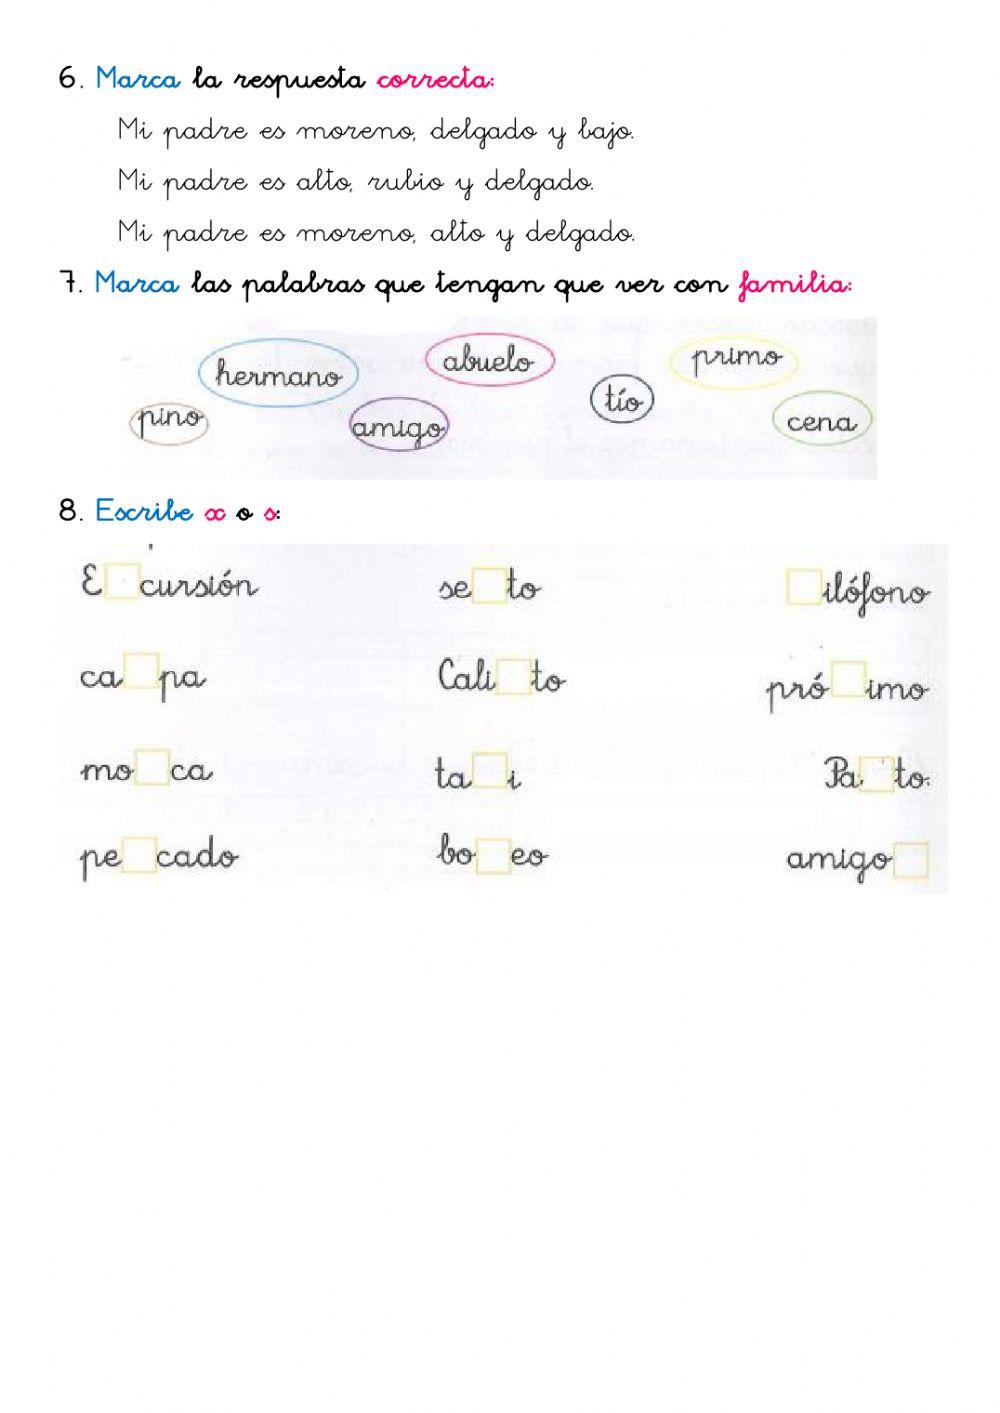 6. Marca la respuesta correcta:
Mi padre es moreno, delgado y bajo.
Mi padre es alto, rubio y delgado.
Mi padre es moreno, alto y delgado.
7. Marca las palabras que tengan que ver con familia:
hermano abuelo primo
pino amigo tío cena
8. Escribe x o s:
E cursión se to ilófono
ca pa Cali to pró imo
mo ca ta i Pa to.
pe cado bo eo amigo